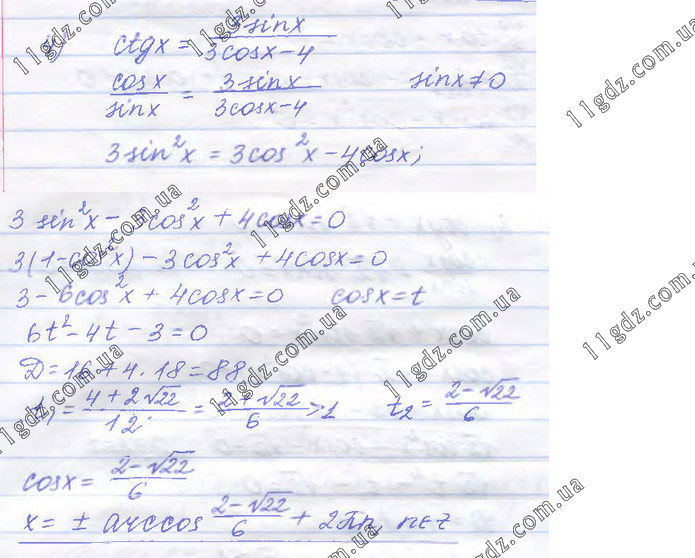 ctgx = 3sinx / 3cosx-4
cosx / sinx = 3sinx / 3cosx-4 sinx≠0
3sin²x = 3cos²x - 4cosx;
3sin²x - 3cos²x + 4cosx=0
3(1-cos²x) - 3cos²x + 4cosx=0
3-6cos²x + 4cosx=0 cosx=t
6t²-4t-3=0
D=16+4·18=88
t₁ = 4+2√22 / 12 = 2+√22 / 6 >1 t₂ = 2-√22 / 6
cosx = 2-√22 / 6
x= ± arccos 2-√22 / 6 + 2πn, n∈Z
11gdz.com.ua
11gdz.com.ua
11gdz.com.ua
11gdz.com.ua
11gdz.com.ua
11gdz.com.ua
11gdz.com.ua
11gdz.com.ua
11gdz.com.ua
11gdz.com.ua
11gdz.com.ua